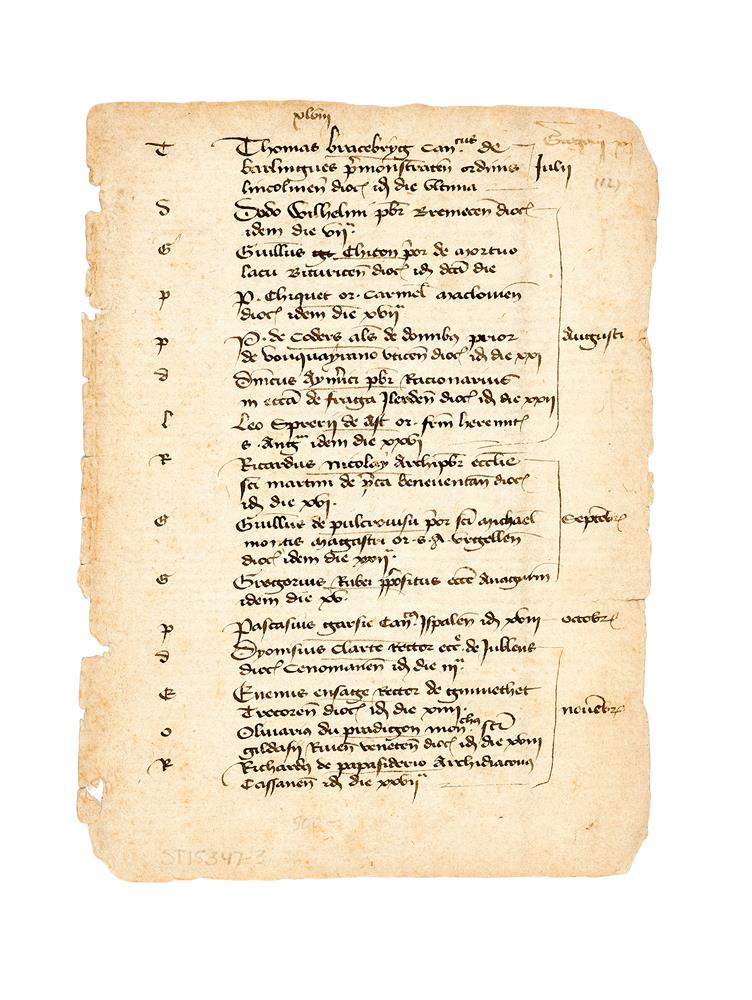 xlviii
Gregorij xj
(12)
T Thomas bracebryg Can.cus de
barlingues p̄monstraten̄ ordinis Julij
lincolnien̄ dioc̄ id̄ die vltima
D Dodo Wilhelmi pbr̄ Bremecen̄ dioc̄
idem die vij.a
G Guillus Chiton p̄or de mortuo
lacu Bituricen̄ dioc̄ id̄ dc̄a die
p P. Chiquet or. Carmel̄ maclouien̄
dioc̄ idem die xvij.a
p P. de Coders als de domibꝰ prior
de vticen̄ dioc̄ id̄ die xxj
Augusti
d Dn̄icus Aym̄ici pbr̄ Racionarius
in ecc̄a de fraga Jlerden̄ dioc̄ id̄ die xxij
l Leo de Ast or. fr̄m heremit̄
s. Aug.a idem die xxvj
R Ricardus nicolay Archipbr̄ ecclie
sc̄i martini de beneuentan̄ dioc̄
id̄ die xvj.
G Guillus de pulcrovisu p̄or sc̄i michael
montis or. s. A. vrgellen̄
dioc̄ idem die xxij.a
Septēbr̄
G Gregorius Rubei p̄positus ecc̄e
idem die xv.
p Pascasius garsie Can.cꝰ Jspalen̄ id̄ xviij octobr̄
d Dyonisius Clarte Rector ecc̄e de Julleus
dioc̄ Cenomanen̄ id̄ die iij.a
E Enenus Rector de
Trecoren̄ dioc̄ id̄ die xiiij.
nouēbr̄
o Oliuariꝰ du pradigon mon.chus sc̄i
gildasij Riuen̄ veneten̄ dioc̄ id̄ die xviij
R Richardꝰ de papasiderio Archidiaconꝰ
Cassanen̄ id̄ die xxvij.a
500 -
ST15347-3